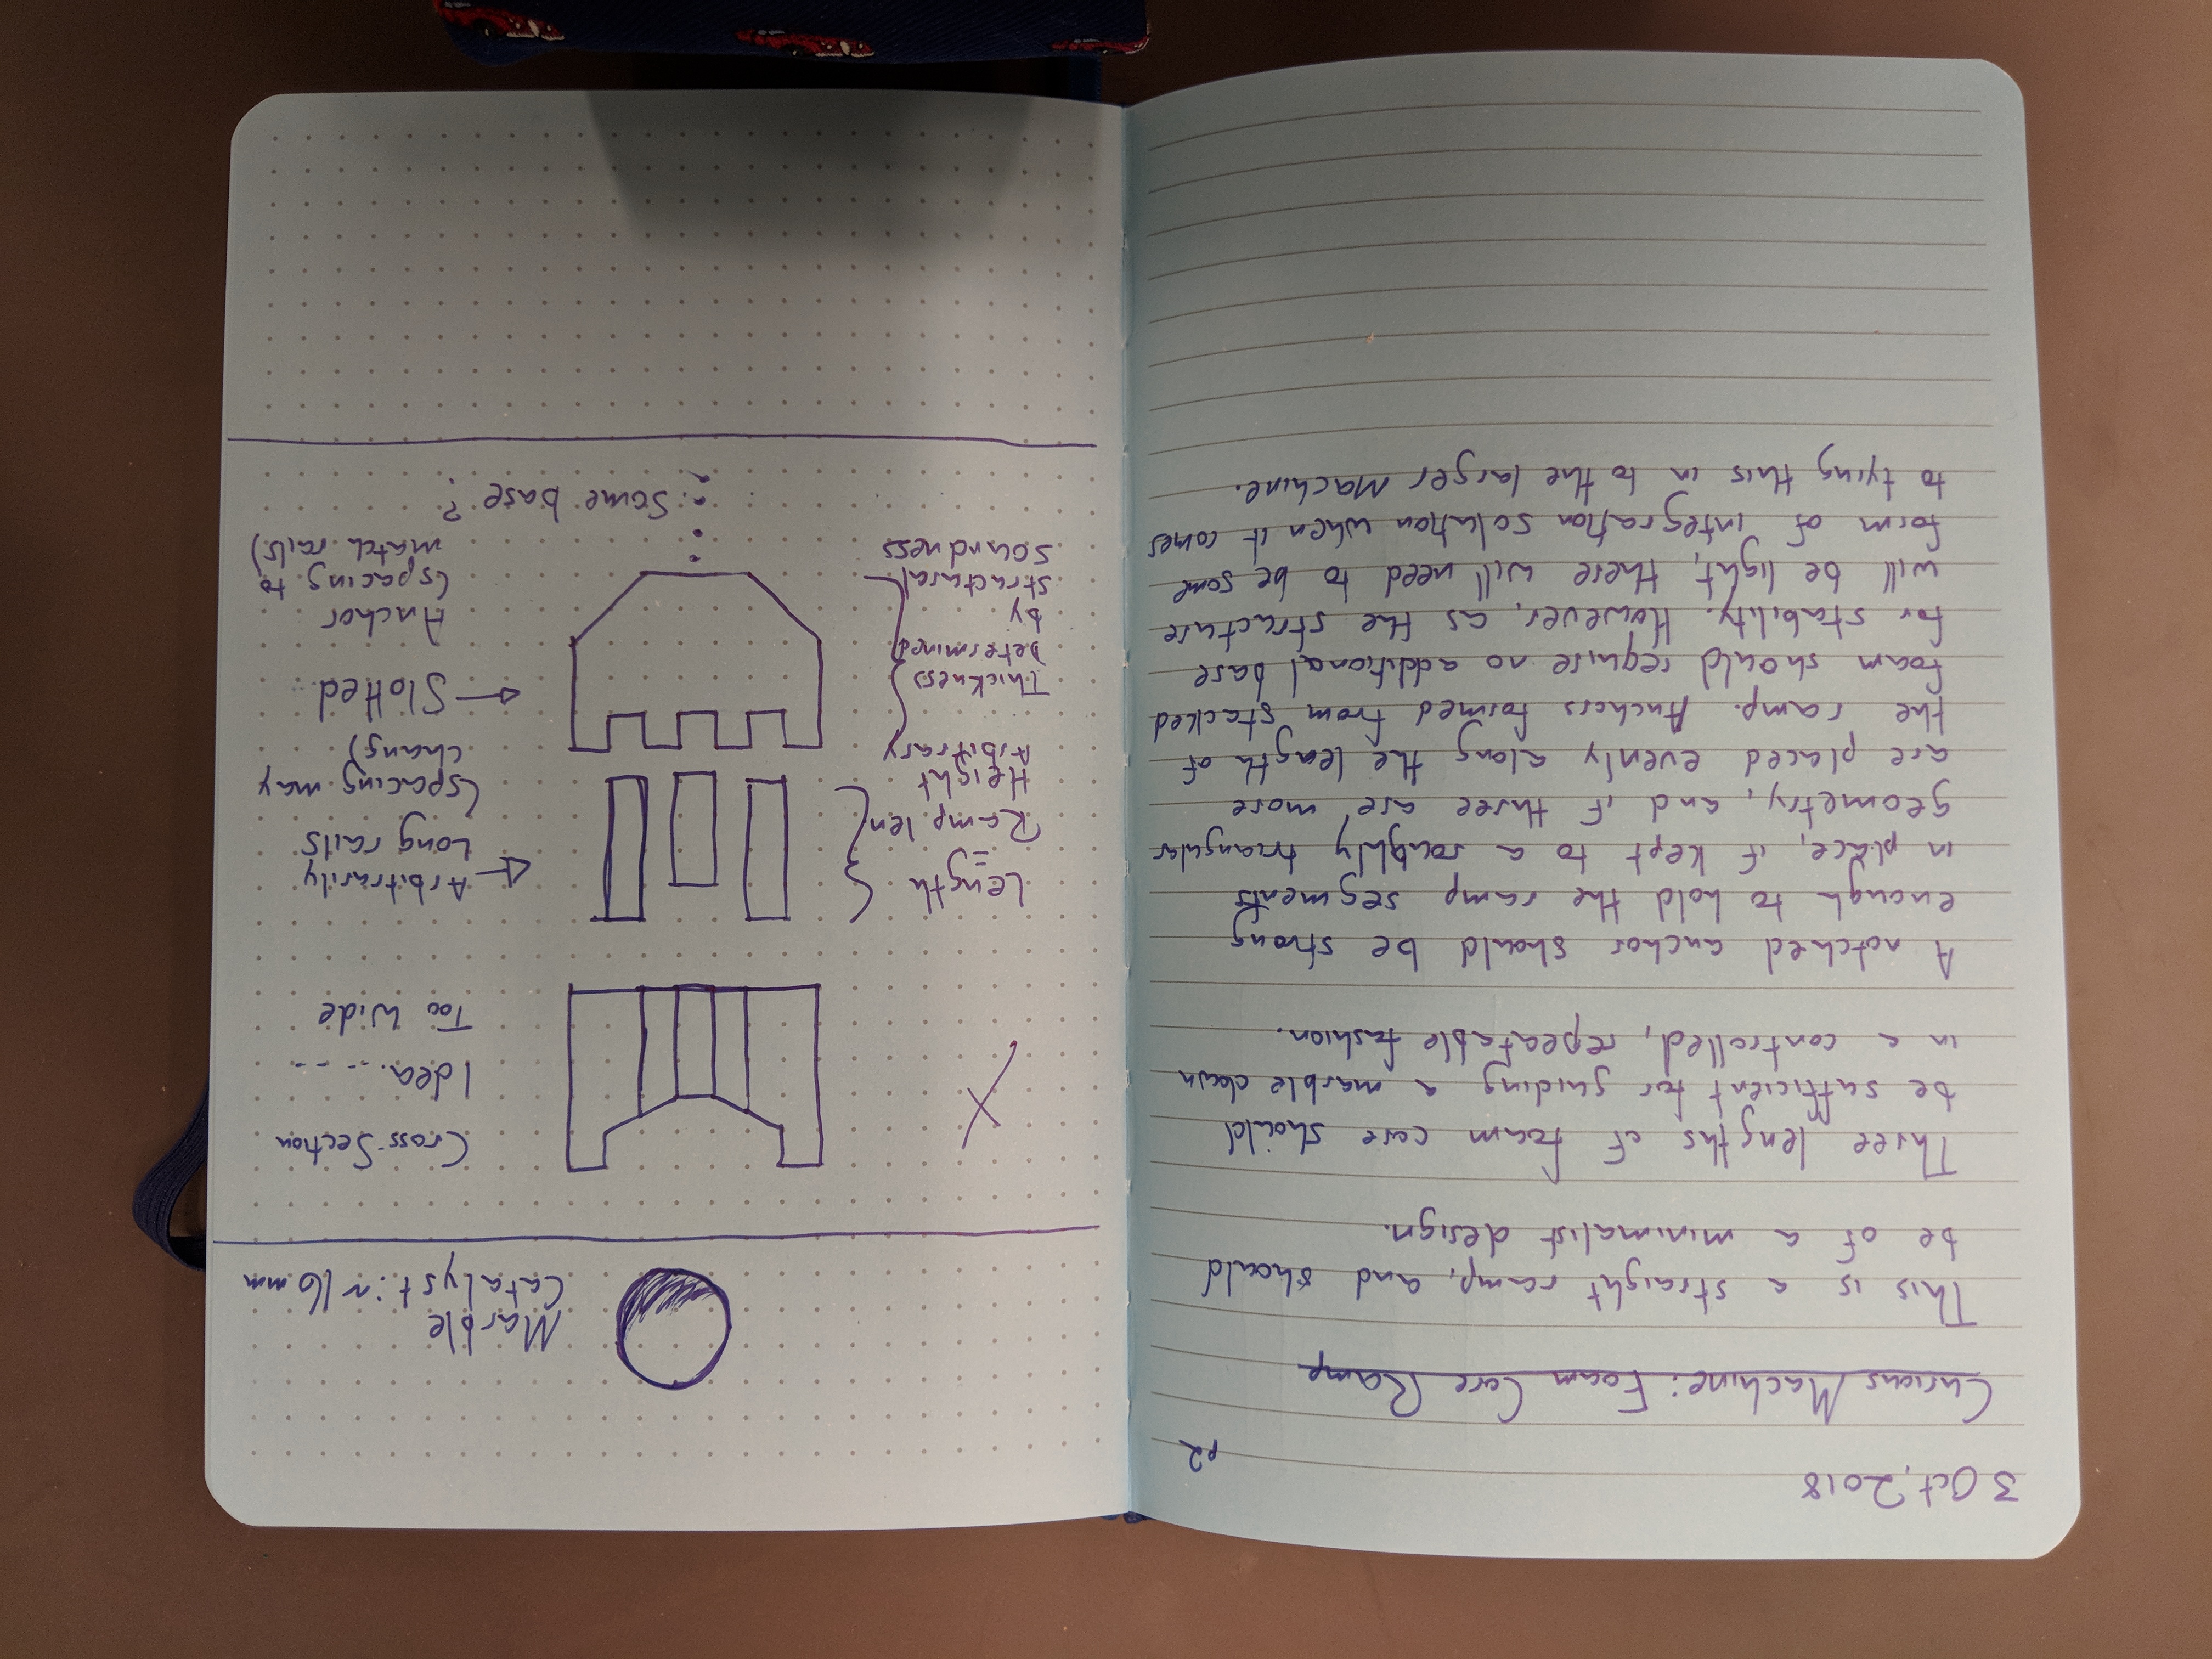 3 Oct, 2018
p2
Curious Machine: Foam Core Ramp
This is a straight ramp, and should
be of a minimalist design.
Three lengths of foam core should
be sufficient for guiding a marble down
in a controlled, repeatable fashion.
A notched anchor should be strong
enough to hold the ramp segments
in place, if kept to a roughly triangular
geometry, and if three are more
are placed evenly along the length of
the ramp. Anchors formed from stacked
foam should require no additional base
for stability. However, as the structure
will be light, there will need to be some
form of integration solution when it comes
to tying this in to the larger Machine.
Marble
Catalyst: ~16mm
X
Cross-Section
Idea.....
Too Wide
Length
=
Ramp len
Height
Arbitrary
Arbitrarily
Long rails
(spacing may
chang)
Thickness
Determined
by
structural
soundness
Slotted
Anchor
(spacing to
match rails)
Some base?